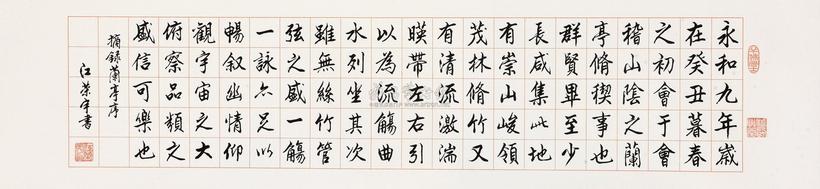 永和九年歲
在癸丑暮春
之初會于會
稽山陰之蘭
亭脩禊事也
群賢畢至少
長咸集此地
有崇山峻領
茂林脩竹又
有清流激湍
暎帶左右引
以為流觴曲
水列坐其次
雖無絲竹管
弦之盛一觴
一詠亦足以
暢叙幽情仰
觀宇宙之大
俯察品類之
盛信可樂也
摘録蘭亭序
江荣宇書